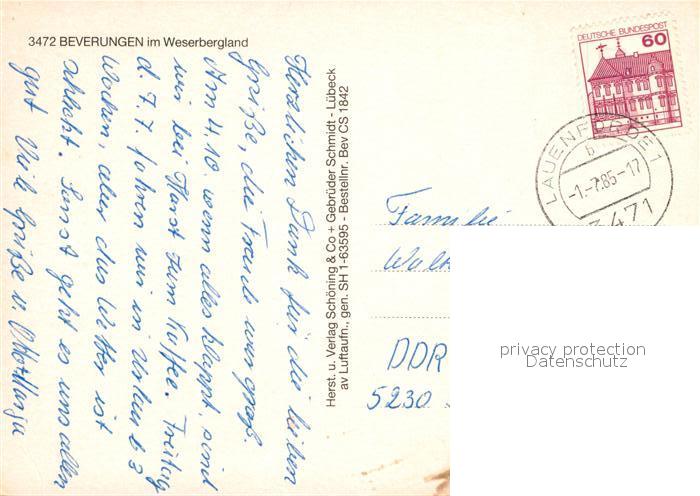 3472 BEVERUNGEN im Weserbergland
Herzlichen Dank für die lieben
Grüße, die Freude war groß.
Am 4.10. wenn alles klappt, sind
wir bei Horst zum Kaffee. Freitag
d. 7.7. fahren wir in Urlaub 3
Wochen, aber das Wetter ist
schlecht. Sonst geht es uns allen
gut Viele Grüße v. Otto +
Herst. u. Verlag Schöning & Co + Gebrüder Schmidt - Lübeck
av Luftaufn., gen. SH 1-63595 - Bestellnr. Bev CS 1842
DEUTSCHE BUNDESPOST
60
LAUENFÖRDE 1
b
-1.-7.85-17
3471
Familie
DDR
5230
privacy protection
Datenschutz